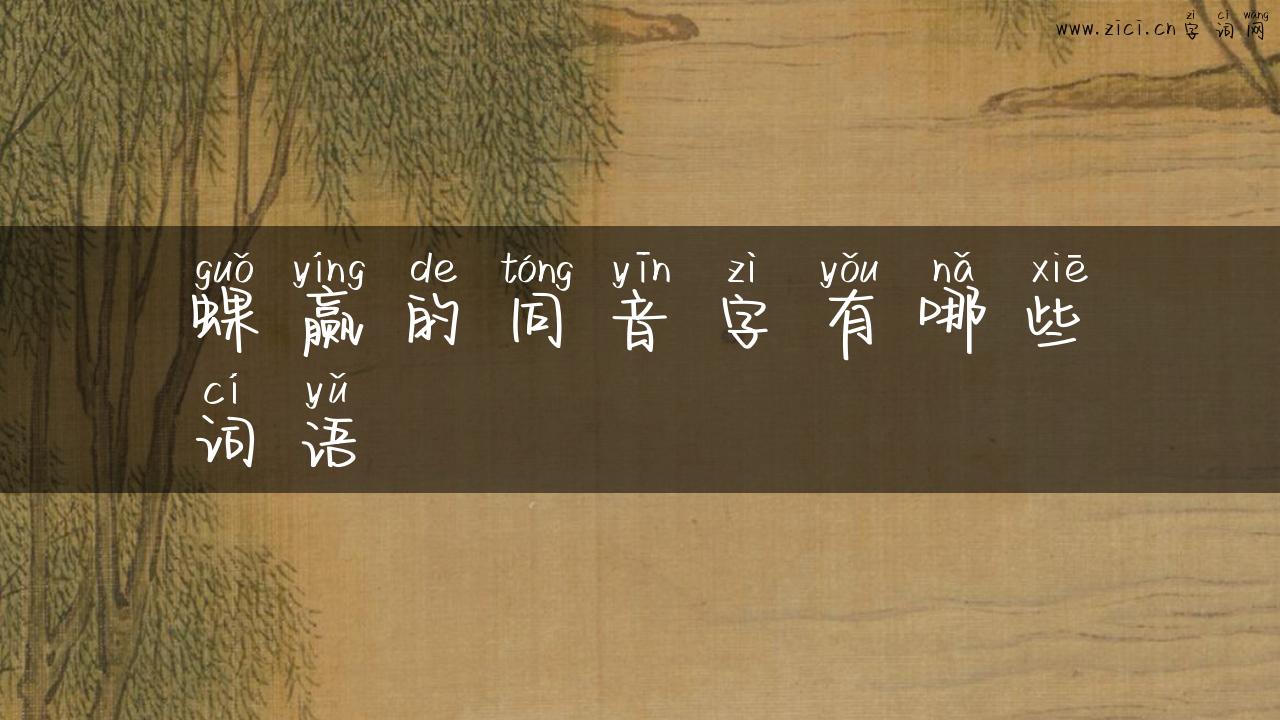 zì cí wǎng
www.zici.cn 字词网
guǒ yíng de tóng yīn zì yǒu nǎ xiē
蜾赢的同音字有哪些
cí yǔ
词语